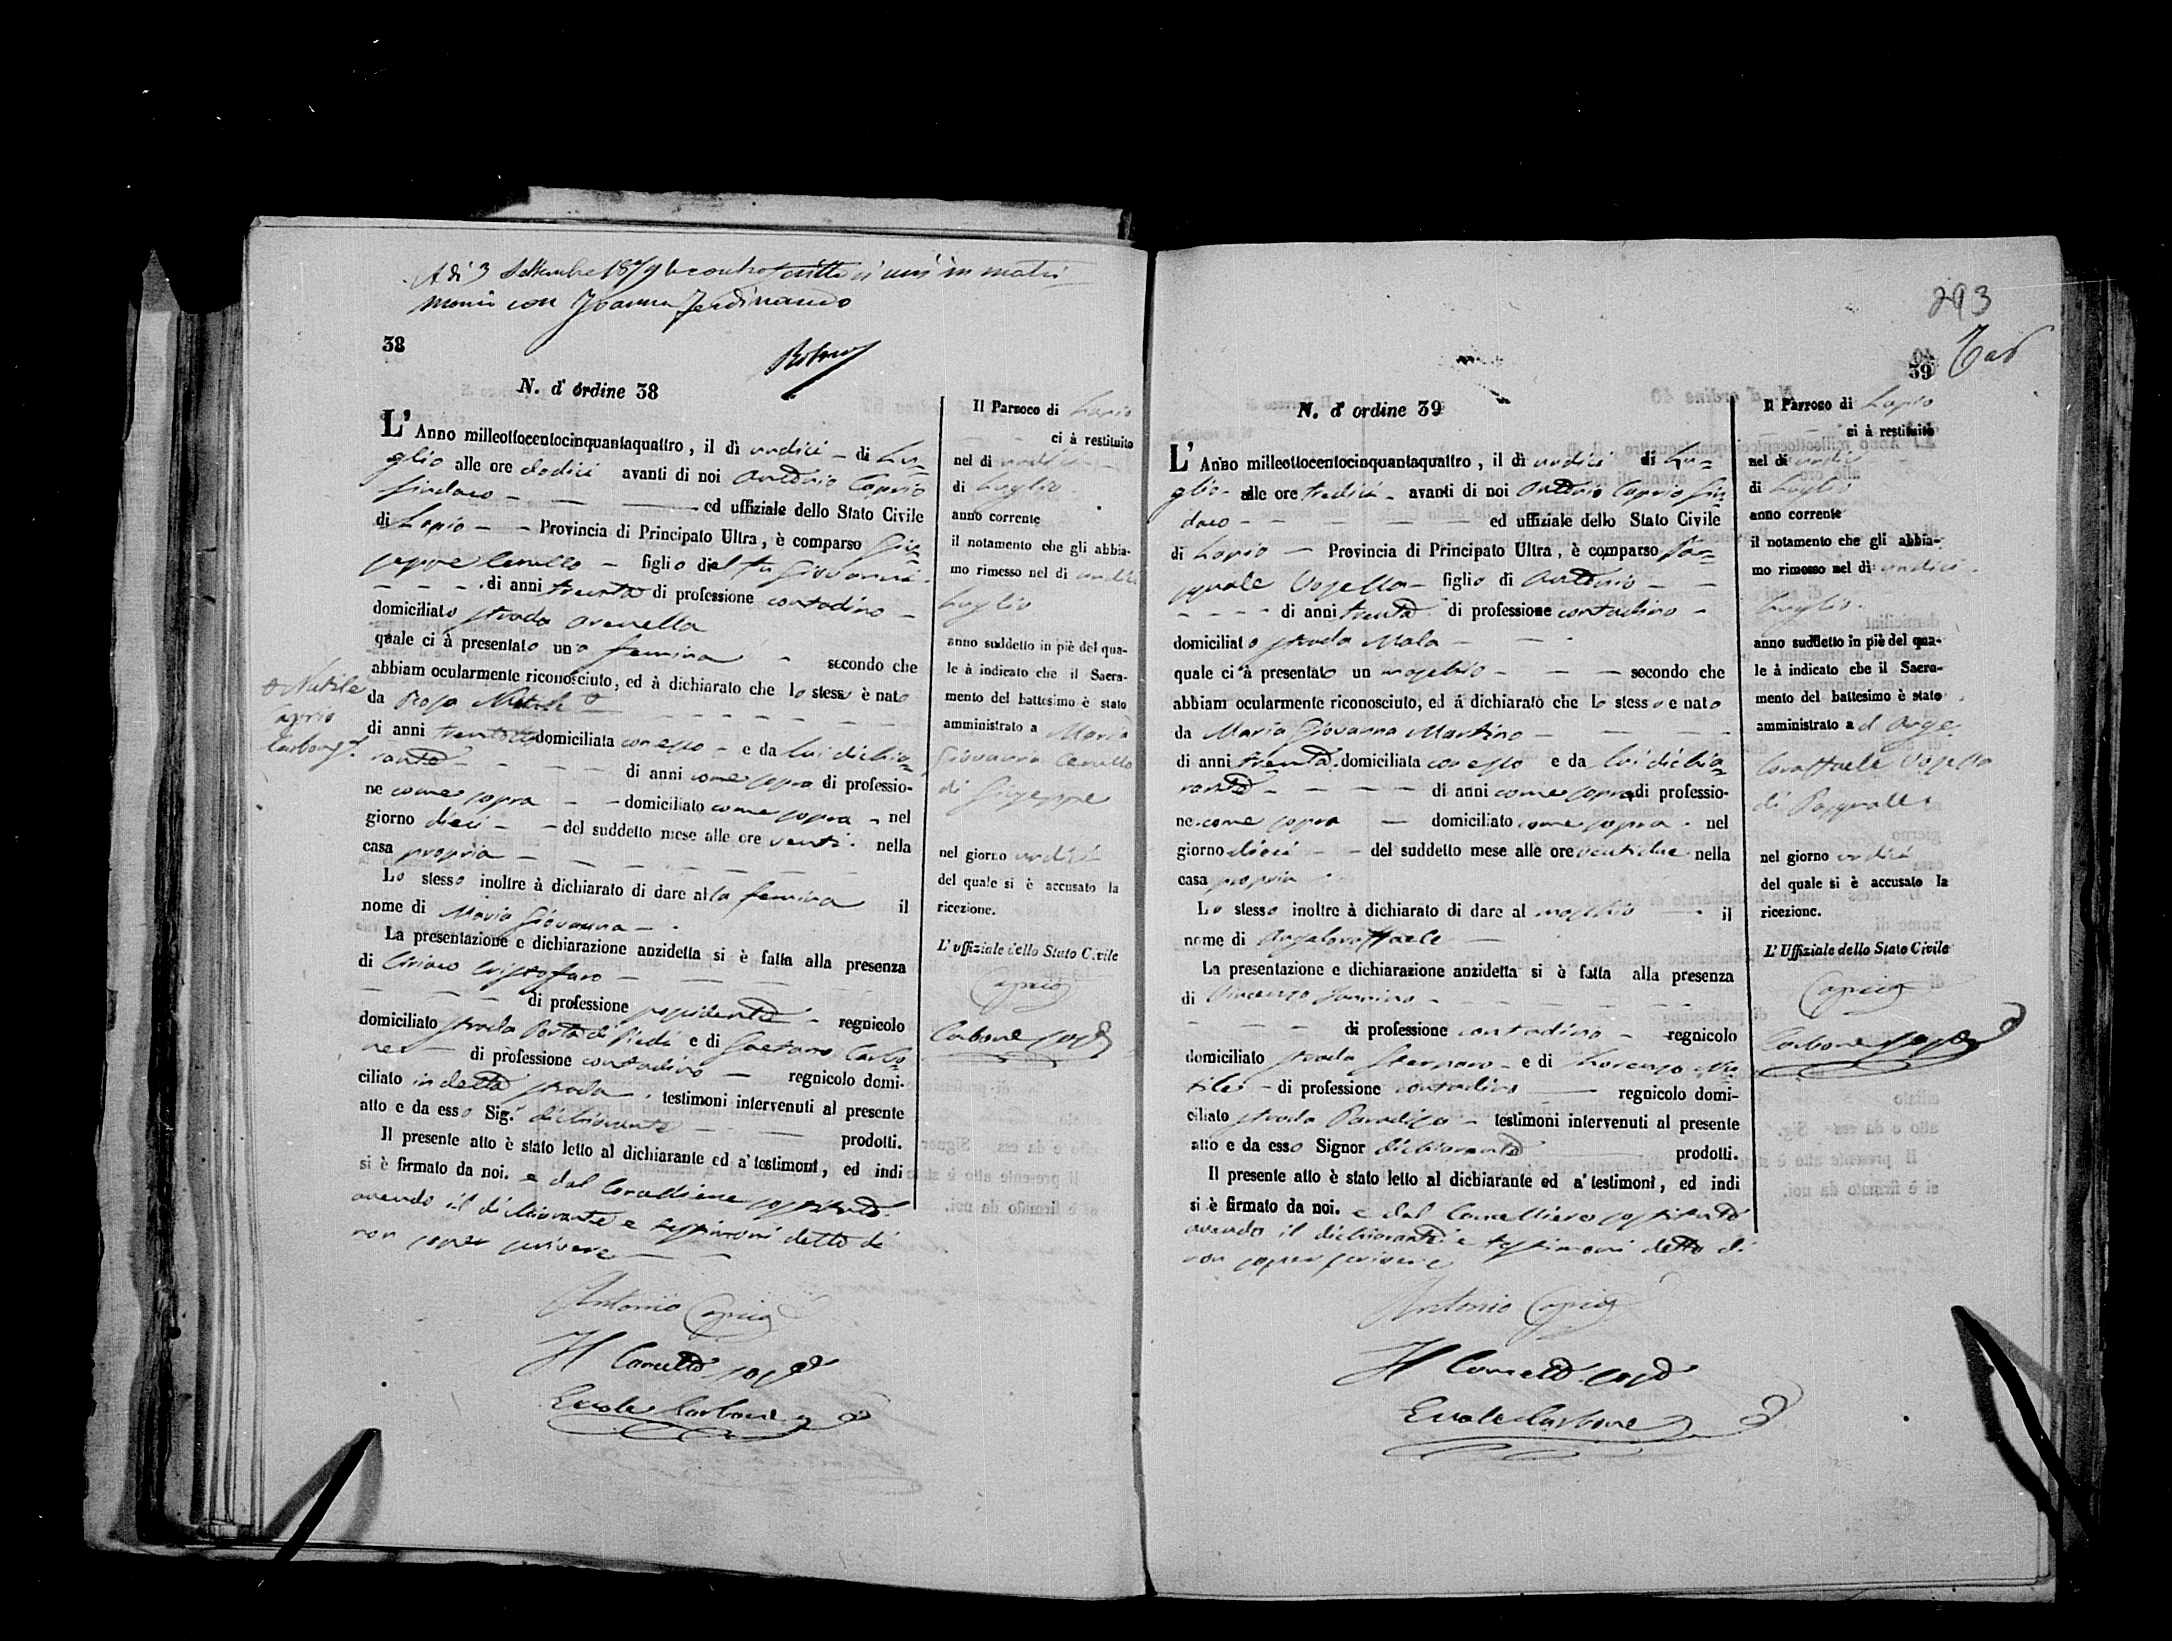 A dì 3 Settembre 1879 la contro scritta si unì in matri
monio con Joanna Ferdinando
38
N. d' ordine 38
L' Anno milleottocentocinquantaquattro, il dì undici - di Lu=
glio alle ore dodici avanti di noi Antonio Caprio
Sindaco - ed uffiziale dello Stato Civile
di Lapio - Provincia di Principato Ultra, è comparso Giu=
seppe Cerullo - figlio del fu Giovanni -
di anni trenta di professione contadino -
domiciliato strada Arenella
quale ci à presentato una femina - secondo che
abbiam ocularmente riconosciuto, ed à dichiarato che lo stesso è nato
da Rosa Nutile
di anni domiciliata con esso - e da lui dichia=
rante - di anni come sopra di professio-
ne come sopra - domiciliato come sopra - nel
giorno dieci - del suddetto mese alle ore venti - nella
casa propria -
Lo stesso inoltre à dichiarato di dare alla femina il
nome di Maria Giovanna -
La presentazione e dichiarazione anzidetta si è fatta alla presenza
di Ciriaco Cristofaro -
di professione possidente - regnicolo
domiciliato strada Porta di Piedi e di Gaetano Carbo
ne - di professione contadino - regnicolo domi-
ciliato in detta strada - testimoni intervenuti al presente
atto e da esso Sig.r dichiarante - prodotti.
Il presente atto è stato letto al dichiarante ed a' testimoni, ed indi
si è firmato da noi. e dal Cancelliere sostituto
avendo il dichiarante e testimoni detto di
non saper scrivere
Antonio Caprio
Il Cancell.e sost.o
Ercole Carbone
Nutile
Caprio
Carbone
Il Parroco di Lapio
ci à restituito
nel dì undici
di Luglio
anno corrente
il notamento che gli abbia-
mo rimesso nel dì undici
Luglio
anno suddetto in piè del qua-
le à indicato che il Sacra-
mento del battesimo è stato
amministrato a Maria
Giovanna Cerullo
di Giuseppe
nel giorno undici
del quale si è accusato la
ricezione.
L' uffiziale dello Stato Civile
Caprio
Carbone sost.o
293
39
N. d' ordine 39
L' Anno milleottocentocinquantaquattro, il dì undici di Lu=
glio - alle ore tredici - avanti di noi Antonio Caprio Sin
daco - ed uffiziale dello Stato Civile
di Lapio - Provincia di Principato Ultra, è comparso Pas=
quale Vozella - figlio di Antonio -
di anni trenta di professione contadino -
domiciliato strada Mala -
quale ci à presentato un maschio - secondo che
abbiam ocularmente riconosciuto, ed à dichiarato che lo stesso e nato
da Maria Giovanna Martino -
di anni trenta domiciliata con esso e da lui dichia=
rante - di anni come sopra di professio-
ne come sopra - domiciliato come sopra - nel
giorno dieci - del suddetto mese alle ore ventidue nella
casa propria -
Lo stesso inoltre à dichiarato di dare al maschio - il
nome di Angeloraffaele -
La presentazione e dichiarazione anzidetta si è fatta alla presenza
di Vincenzo Iannino -
di professione contadino - regnicolo
domiciliato strada - e di Lorenzo Nu
tile - di professione contadino - regnicolo domi-
ciliato strada Paradiso - testimoni intervenuti al presente
atto e da esso Signor dichiarante prodotti.
Il presente atto è stato letto al dichiarante ed a' testimoni, ed indi
si è firmato da noi. e dal Cancelliere sostituto
avendo il dichiarante e testimoni detto di
non saper scrivere
Antonio Caprio
Il Cancell.e sost.o
Ercole Carbone
Il Parroco di Lapio
ci à restituito
nel dì undici
di Luglio
anno corrente
il notamento che gli abbia-
mo rimesso nel dì undici
Luglio
anno suddetto in piè del qua-
le à indicato che il Sacra-
mento del battesimo è stato
amministrato a d Ange
loraffaele Vozella
di Pasquale
nel giorno undici
del quale si è accusato la
ricezione.
L' Uffiziale dello Stato Civile
Caprio
Carbone sost.o